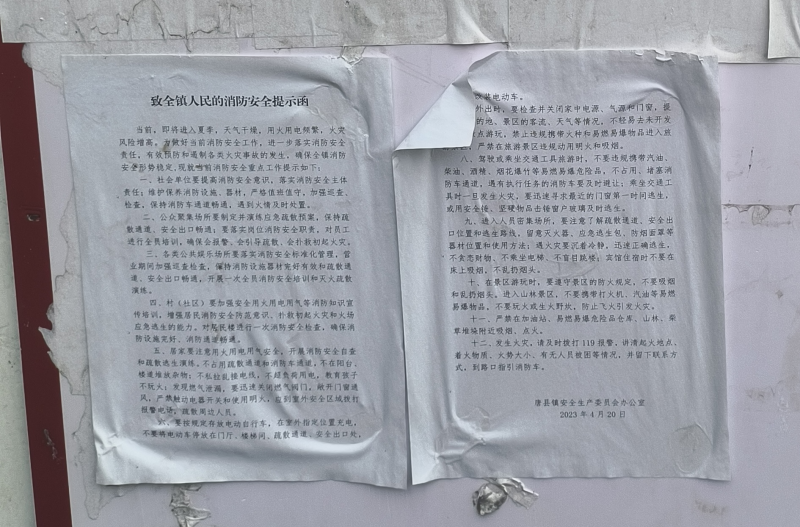 致全镇人民的消防安全提示函
当前，即将进入夏季，天气干燥，用火用电频繁，火灾
风险增高，为做好当前消防安全工作，进一步落实消防安全
责任，有效预防和遏制各类火灾事故的发生，确保全镇消防
安全形势稳定，现就当前消防安全重点工作提示如下：
一、社会单位要提高消防安全意识，落实消防安全主体
责任；维护保养消防设施、器材，严格值班值守，加强巡查、
检查，保持消防车通道畅通，遇到火情及时处置。
二、公众聚集场所要制定并演练应急疏散预案，保持疏
散通道、安全出口畅通；要落实岗位消防安全职责，对员工
进行全员培训，确保会报警、会引导疏散、会扑救初起火灾。
三、各类公共娱乐场所要落实消防安全标准化管理，营
业期间加强巡查检查，保持消防设施器材完好有效和疏散通
道、安全出口畅通，开展一次全员消防安全培训和灭火疏散
演练。
四、村（社区）要加强安全用火用电用气等消防知识宣
传培训，增强居民消防安全防范意识、扑救初起火灾和火场
应急逃生的能力。对居民楼进行一次消防安全检查，确保消
防设施完好、消防通道畅通。
五、居家要注意用火用电用气安全，开展消防安全自查
和疏散逃生演练，不占用疏散通道和消防车通道，不在阳台、
楼道堆放杂物；不私拉乱接电线，不超负荷用电，教育孩子
不玩火；发现燃气泄漏，要迅速关闭燃气阀门，敞开门窗通
风，严禁触动电器开关和使用明火，应到室外安全区域拨打
报警电话，疏散周边人员。
六、要按规定存放电动自行车，在室外指定位置充电，
不要将电动车停放在门厅、楼梯间、疏散通道、安全出口处，
改装电动车。
外出时，要检查并关闭家中电源、气源和门窗，提
的地、景区的客流、天气等情况，不轻易去未开发
点游玩，禁止违规携带火种和易燃易爆物品进入旅
，严禁在旅游景区违规动用明火和吸烟。
八、驾驶或乘坐交通工具旅游时，不要违规携带汽油、
柴油、酒精、烟花爆竹等易燃易爆危险品，不占用、堵塞消
防车通道，遇有执行任务的消防车要及时避让；乘坐交通工
具时一旦发生火灾，要迅速寻求最近的门窗第一时间逃生，
或用安全锤、坚硬物品击锤窗户玻璃及时逃生。
九、进入人员密集场所，要注意了解疏散通道、安全出
口位置和逃生路线，留意灭火器、应急逃生包、防烟面罩等
器材位置和使用方法；遇火灾要沉着冷静，迅速正确逃生，
不贪恋财物、不乘坐电梯、不盲目跳楼；宾馆住宿时不要在
床上吸烟，不乱扔烟头。
十、在景区游玩时，要遵守景区的防火规定，不要吸烟
和乱扔烟头。进入山林景区，不要携带打火机、汽油等易燃
易爆物品，不要玩火或生火野炊，防止飞火引发火灾。
十一、严禁在加油站、易燃易爆危险品仓库、山林、柴
草堆垛附近吸烟、点火。
十二、发生火灾，请及时拨打119报警，讲清起火地点、
着火物质、火势大小、有无人员被困等情况，并留下联系方
式，到路口指引消防车。
唐县镇安全生产委员会办公室
2023年4月20日